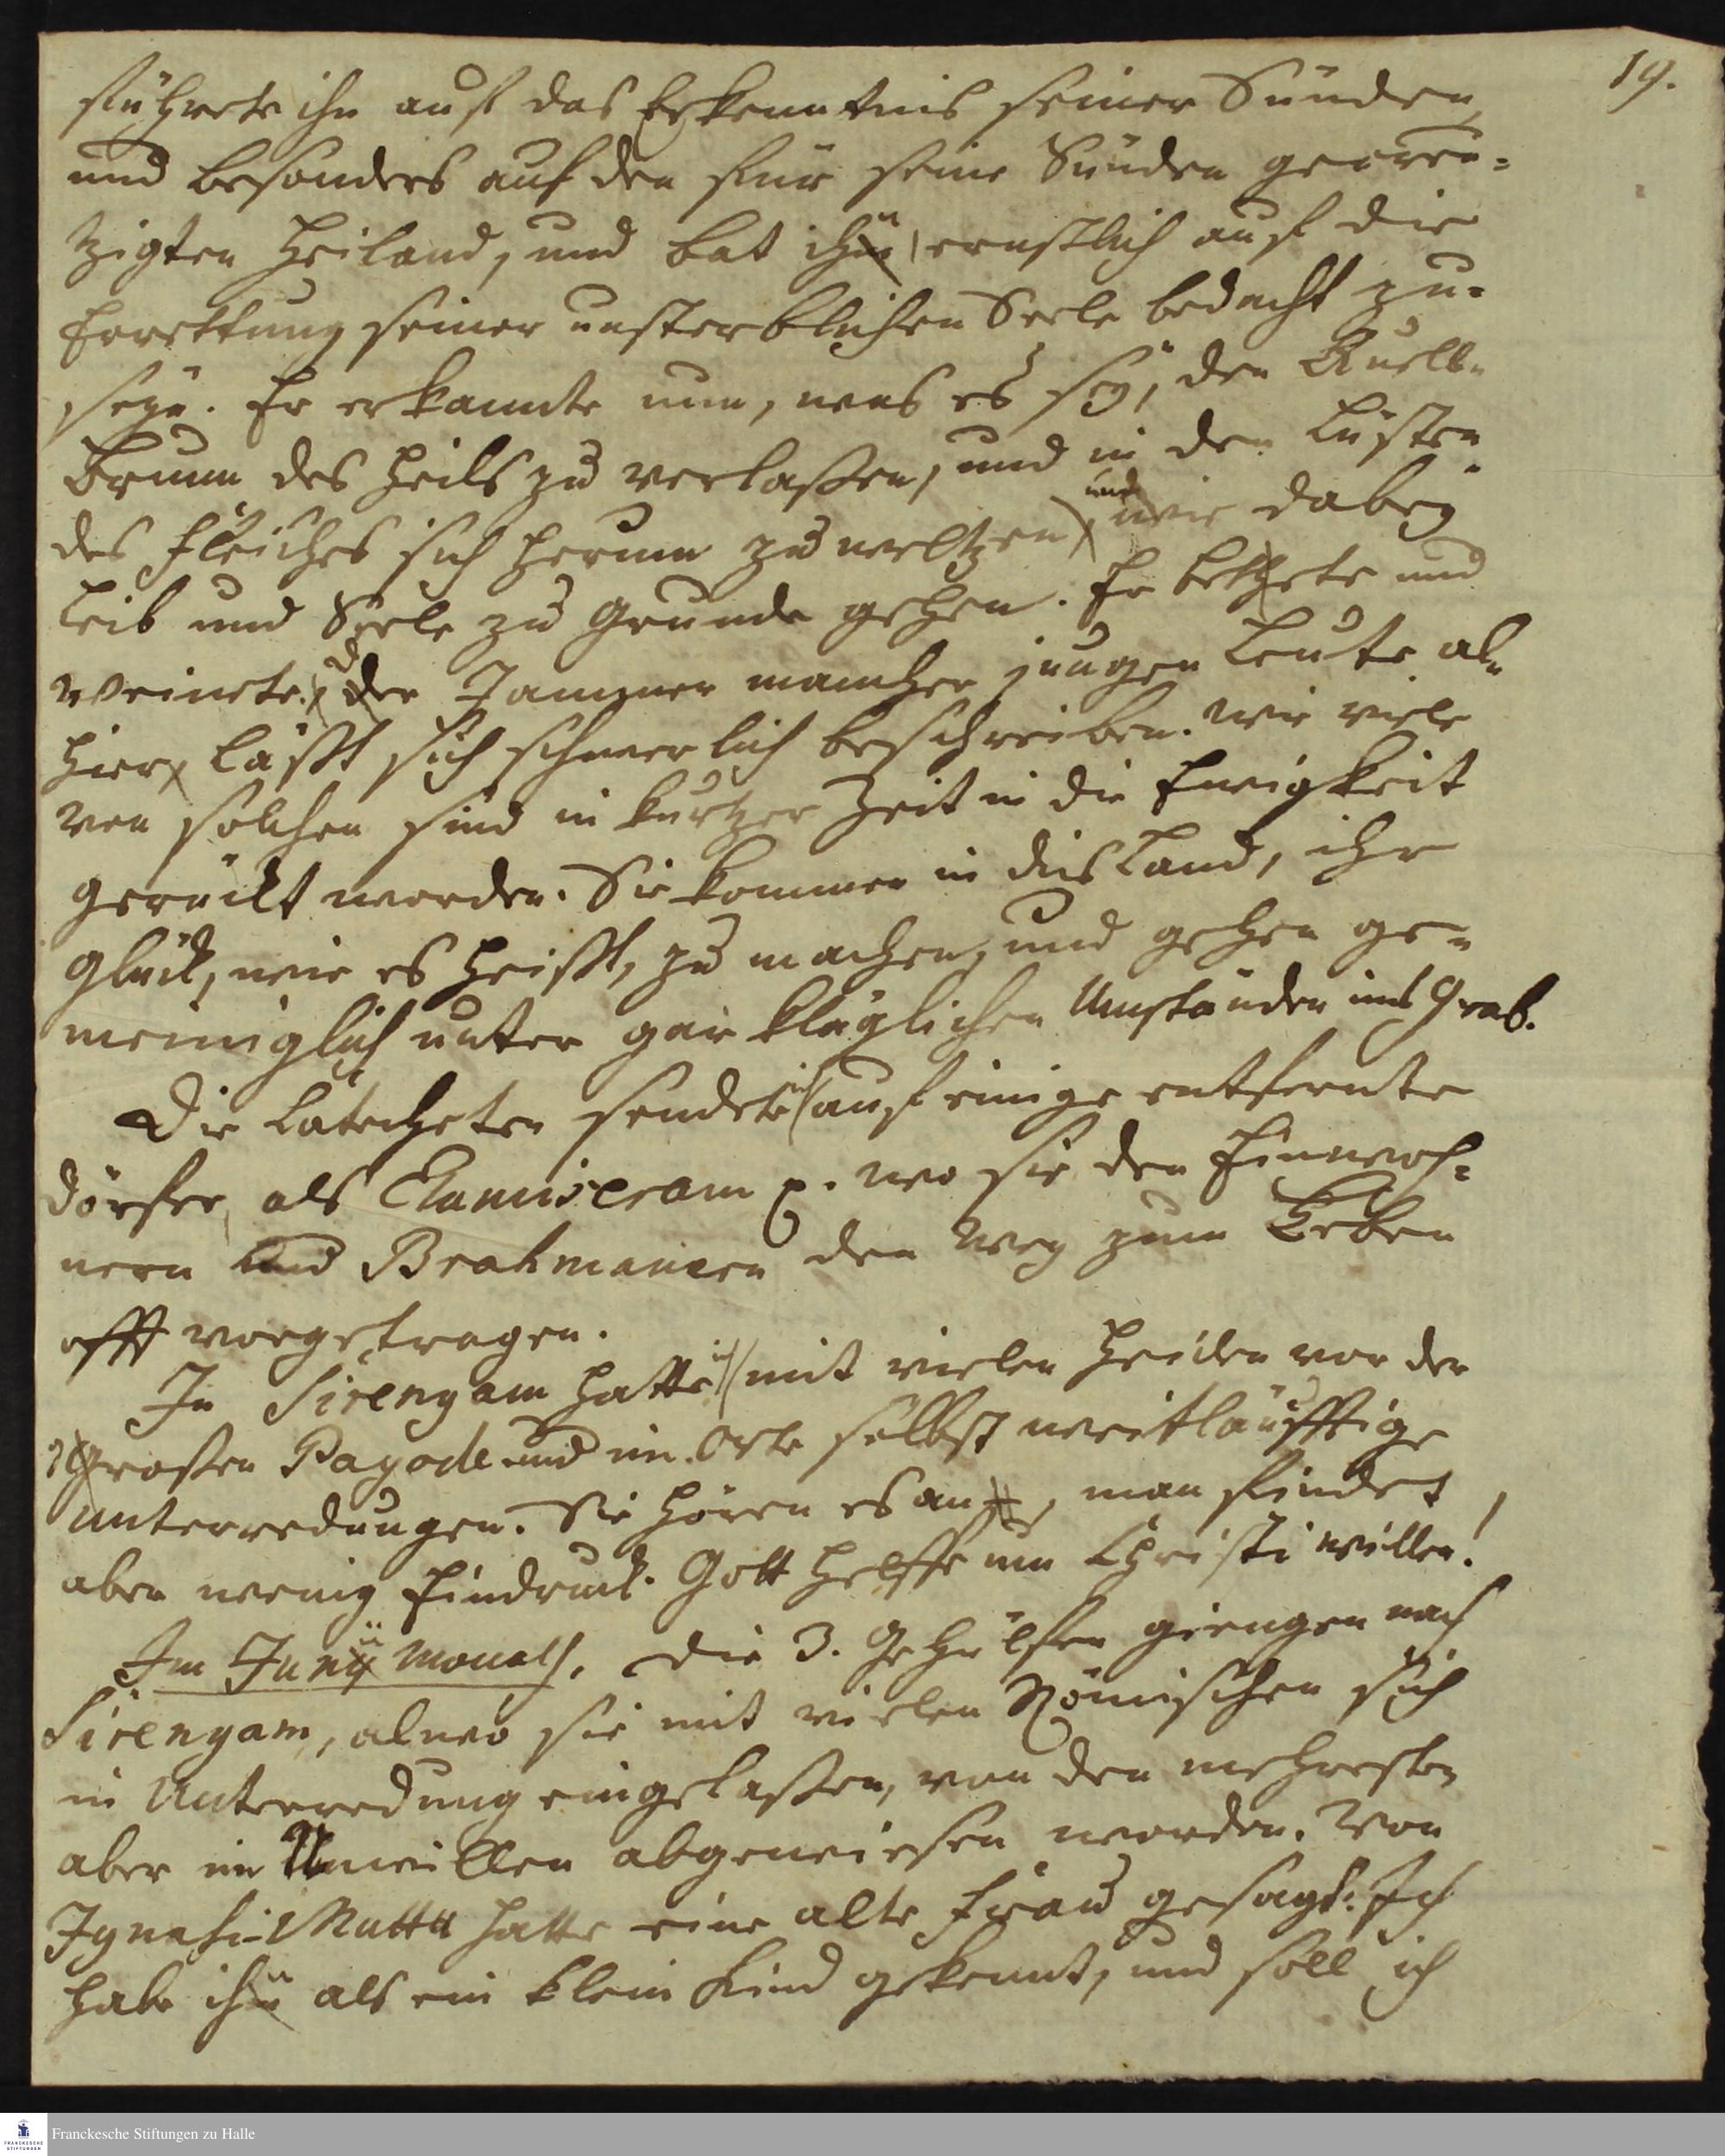 19.
führete ihn auf das Erkenntnis seiner Sünden,
und besonders auf den für seine Sünden gecreu-
tzigten Heiland, und bat ihn ernstlich auf die
Errettung seiner unsterblichen Seele bedacht zu
seyn. Er erkannte nun, was es sey, den Quell-
brunn des Heils zu verlaßen, und in den Lüsten
des Fleisches sich herum zu weltzen, und wie dabey
Leib und Seele zu Grunde gehen. Er bethete und
weinete. Der Jammer mancher jungen Leute al-
hier läßt sich schwerlich beschreiben. Wie viele
von solchen sind in kurtzer Zeit in die Ewigkeit
gerückt worden. Sie kommen in dis Land, ihr
Glück, wie es heißt, zu machen, und gehen ge-
meiniglich unter gar kläglichen Umständen ins Grab.
Die Catecheten sendete ich auf einige entfernte
Dörfer, als Elamiseram p. wo sie den Einwoh-
nern und Brahmanern den Weg zum Leben
offt vorgetragen.
In Sirengam hatte ich mit vielen Heiden vor der
großen Pagode und im Orte selbst weitläufftige
Unterredungen. Sie hören es an, man findet
aber wenig Eindruck. Gott helffe um Christi willen!
Im Junii Monath. Die 3. Gehülfen giengen nach
Sirengam, alwo sie mit vielen Römischen sich
in Unterredung eingelaßen, von den mehresten
aber im Unwillen abgewiesen worden. Von
Ignasi-Muttu hatte eine alte Frau gesagt: Ich
habe ihn als ein klein Kind gekennt, und soll ich
Franckesche Stiftungen zu Halle